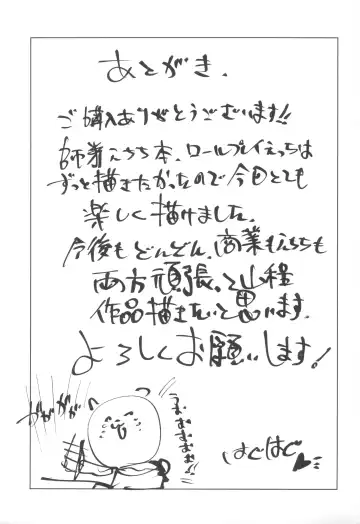 あとがき.
ご購入ありがとうございます!!
師弟えちち本、ロールプレイえっちは
ずっと描きたかったので今回とても
楽しく描けました.
今後もどんどん、商業もえちちも
両方頑張って沢山
作品描きたいと思います.
よろしくお願いします!
ががががが
はむはむ